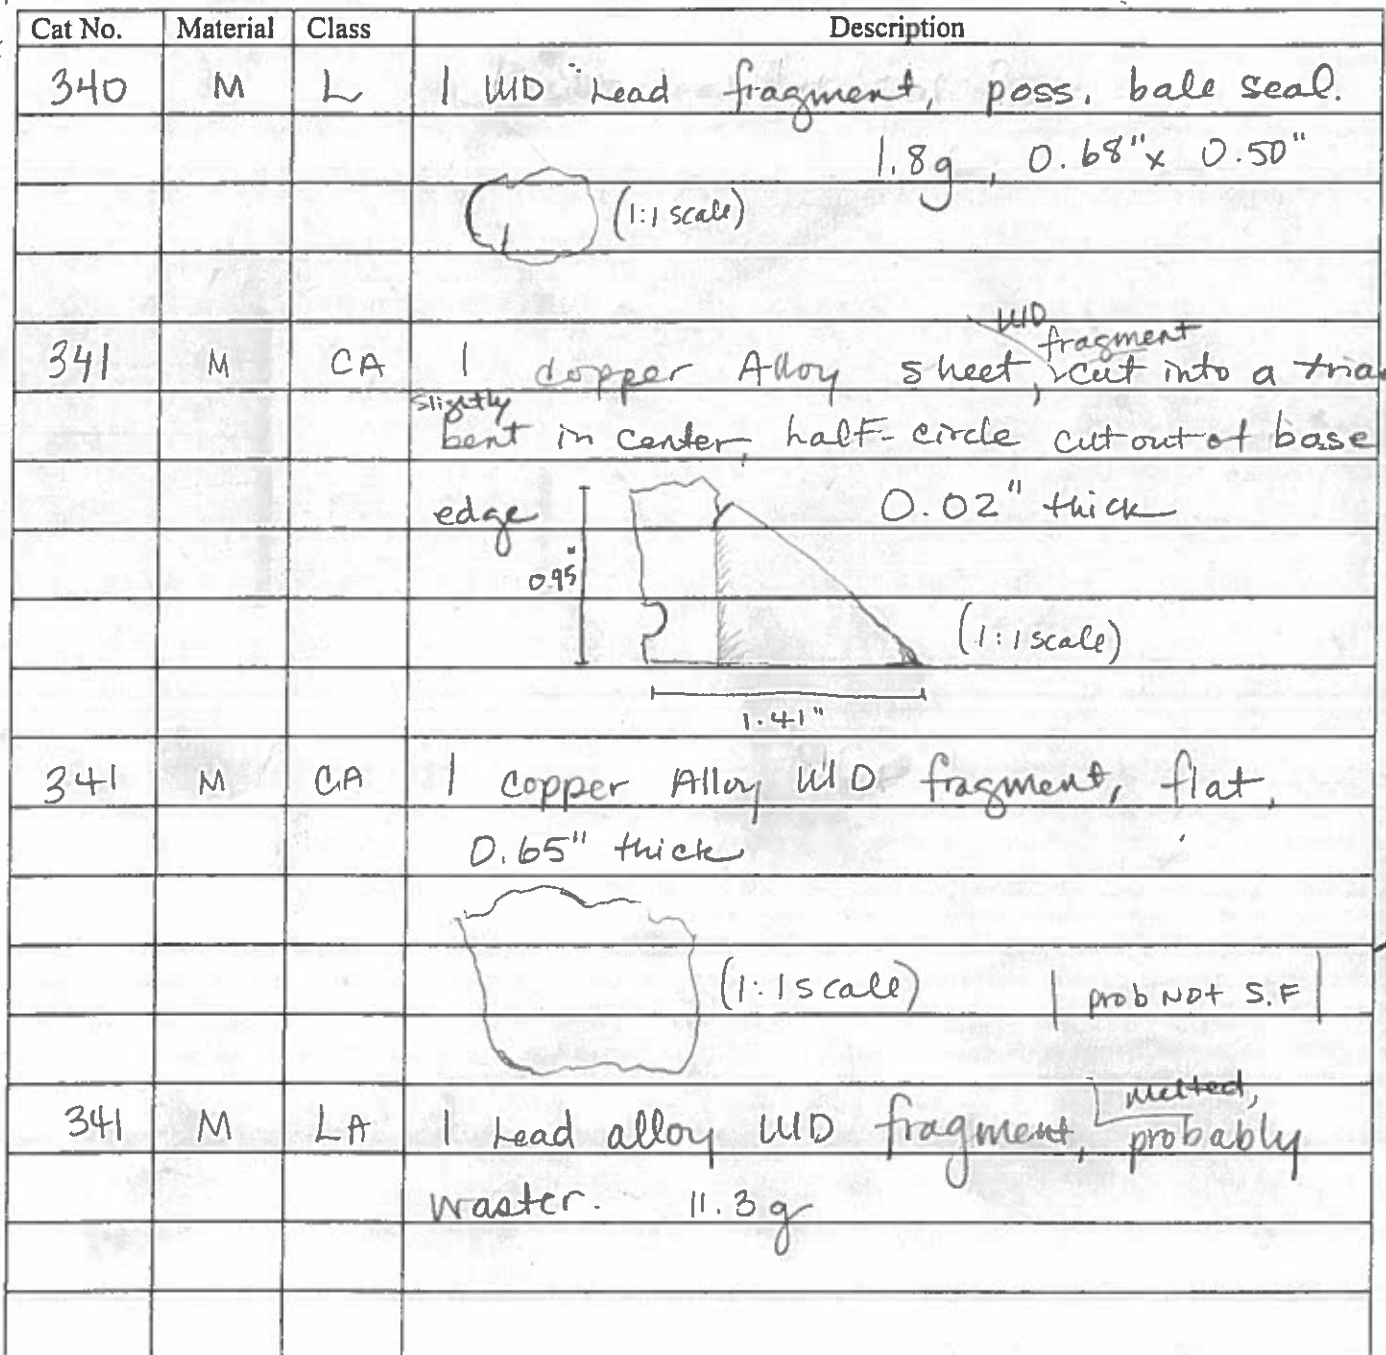 Cat No. Material Class Description
340 M L 1 UID Lead fragment, poss. bale seal.
1.8g, 0.68" x 0.50"
(1:1 scale)
UID fragment
341 M CA 1 copper Alloy sheet, cut into a tria
slightly
bent in center, half-circle cut out of base
edge 0.02" thick
0.95"
(1:1 scale)
1.41"
341 M CA 1 copper Alloy UID fragment, flat,
0.65" thick
(1:1 scale) prob Not S.F
melted,
341 M LA 1 Lead alloy UID fragment, probably
waster. 11.3g